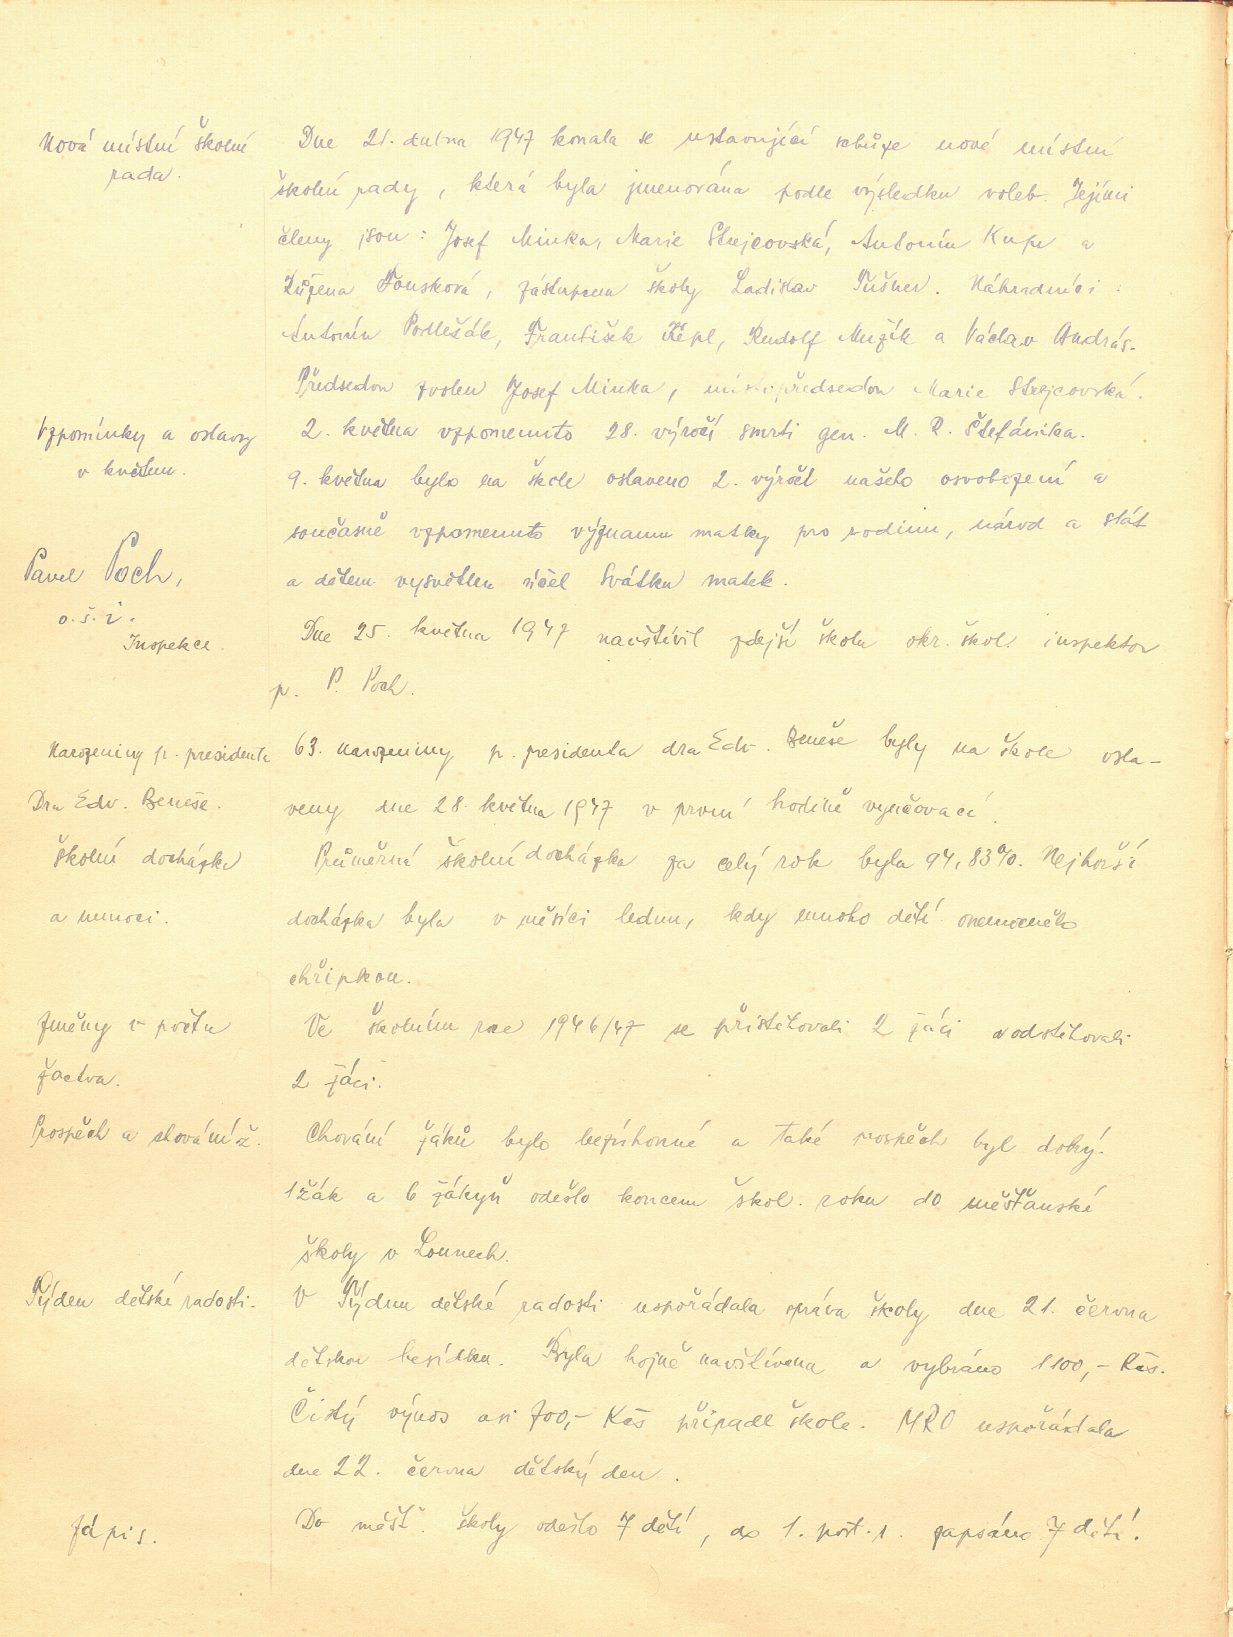 Nová místní školní
rada.
Dne 21. dubna 1947 konala se ustavující schůze nové místní
školní rady, která byla jmenována podle výsledku voleb. Jejími
členy jsou: Josef Minka, Marie Strejcovská, Antonín Kupr a
Růžena Fousková, zástupcem školy Ladislav Tušner. Náhradníci:
Antonín Podlešák, František Képl, Rudolf Muzík a Václav András.
Předsedou zvolen Josef Minka, místopředsedou Marie Strejcovská.
Vzpomínky a oslavy
v květnu.
2. května vzpomenuto 28. výročí smrti gen. M. R. Štefánika.
9. května bylo na škole oslaveno 2. výročí našeho osvobození a
současně vzpomenuto významu matky pro rodinu, národ a stát
a dětem vysvětlen účel Svátku matek.
Pavel Poch,
o. š. i.
Inspekce.
Dne 25. května 1947 navštívil zdejší školu okr. škol. inspektor
p. P. Poch.
Narozeniny p. presidenta
Dra Edv. Beneše.
63. narozeniny p. presidenta dra Edv. Beneše byly na škole osla-
veny dne 28. května 1947 v první hodině vyučovací.
Školní docházka
a nemoci.
Průměrná školní docházka za celý rok byla 94,83%. Nejhorší
docházka byla v měsíci lednu, kdy mnoho dětí onemocnělo
chřipkou.
Změny v počtu
žactva.
Ve školním roce 1946/47 se přistěhovali 2 žáci a odstěhovali
2 žáci.
Prospěch a chování ž.
Chování žáků bylo bezúhonné a také prospěch byl dobrý.
1 žák a 6 žákyň odešlo koncem škol. roku do měšťanské
školy v Lounech.
Týden dětské radosti.
V Týdnu dětské radosti uspořádala správa školy dne 21. června
dětskou besídku. Byla hojně navštívena a vybráno 1100,- Kčs.
Čistý výnos asi 700,- Kčs připadl škole. MRO uspořádala
dne 22. června dětský den.
Zápis.
Do měšť. školy odešlo 7 dětí, do 1. post. r. zapsáno 7 dětí.